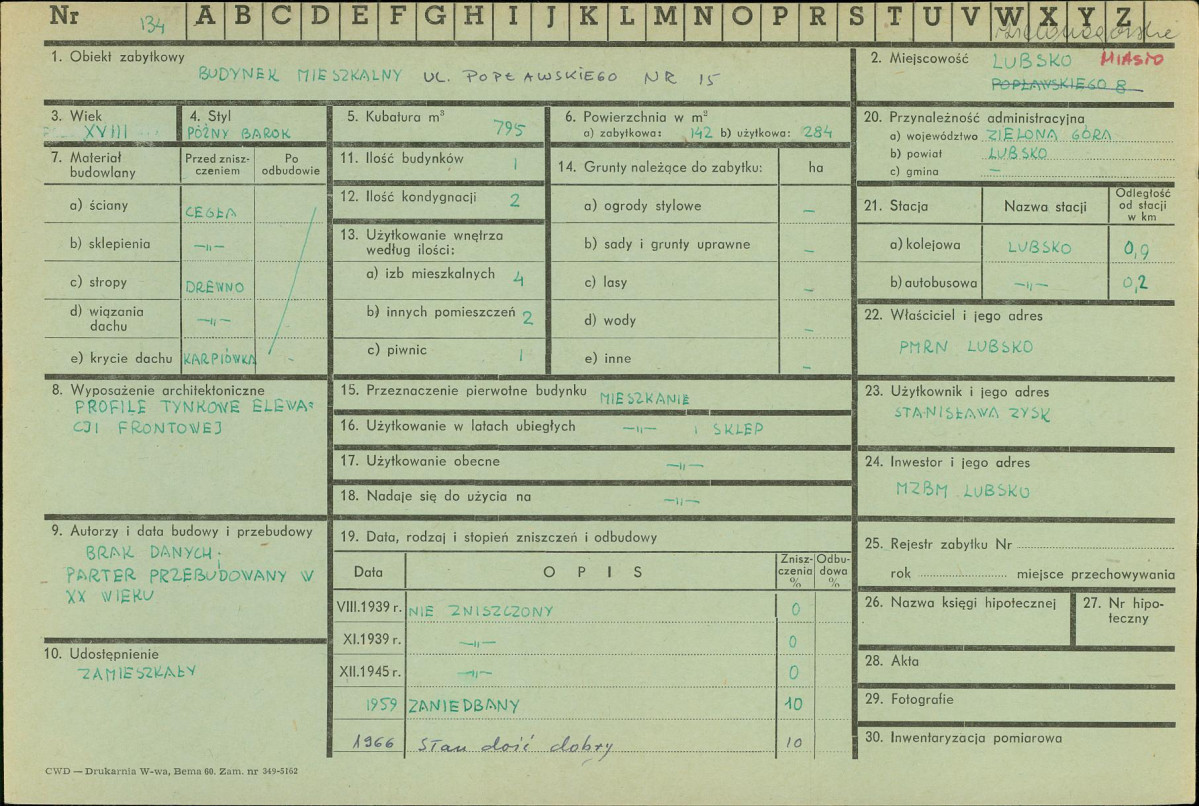 Nr 134 A B C D E F G H I J K L M N O P R S T U V W X Y Z
Zielonogórskie
1. Obiekt zabytkowy
BUDYNEK MIESZKALNY UL. POPŁAWSKIEGO NR 15
2. Miejscowość LUBSKO MIASTO
POPŁAWSKIEGO 8
3. Wiek
XVIII
4. Styl
PÓŹNY BAROK
5. Kubatura m³ 795
6. Powierzchnia w m²
a) zabytkowa: 142 b) użytkowa: 284
7. Materiał budowlany
Przed znisz-
czeniem
Po
odbudowie
a) ściany CEGŁA
b) sklepienia —„—
c) stropy DREWNO
d) wiązania
dachu —„—
e) krycie dachu KARPIÓWKA
8. Wyposażenie architektoniczne
PROFILE TYNKOWE ELEWA=
CJI FRONTOWEJ
9. Autorzy i data budowy i przebudowy
BRAK DANYCH.
PARTER PRZEBUDOWANY W
XX WIEKU
10. Udostępnienie
ZAMIESZKAŁY
11. Ilość budynków 1
12. Ilość kondygnacji 2
13. Użytkowanie wnętrza
według ilości:
a) izb mieszkalnych 4
b) innych pomieszczeń 2
c) piwnic 1
14. Grunty należące do zabytku: ha
a) ogrody stylowe —
b) sady i grunty uprawne —
c) lasy —
d) wody —
e) inne —
15. Przeznaczenie pierwotne budynku MIESZKANIE
16. Użytkowanie w latach ubiegłych —„— I SKLEP
17. Użytkowanie obecne —„—
18. Nadaje się do użycia na —„—
19. Data, rodzaj i stopień zniszczeń i odbudowy
Data OPIS Znisz-
czenia
% Odbu-
dowa
%
VIII.1939 r. NIE ZNISZCZONY 0
XI.1939 r. —„— 0
XII.1945 r. —„— 0
1959 ZANIEDBANY 10
1966 Stan dość dobry 10
20. Przynależność administracyjna
a) województwo ZIELONA GÓRA
b) powiat LUBSKO
c) gmina —
21. Stacja Nazwa stacji Odległość
od stacji
w km
a) kolejowa LUBSKO 0,9
b) autobusowa —„— 0,2
22. Właściciel i jego adres
PMRN LUBSKO
23. Użytkownik i jego adres
STANISŁAWA ZYSK
24. Inwestor i jego adres
MZBM LUBSKO
25. Rejestr zabytku Nr
rok miejsce przechowywania
26. Nazwa księgi hipotecznej
27. Nr hipo-
teczny
28. Akta
29. Fotografie
30. Inwentaryzacja pomiarowa
CWD — Drukarnia W-wa, Bema 60. Zam. nr 349-5162